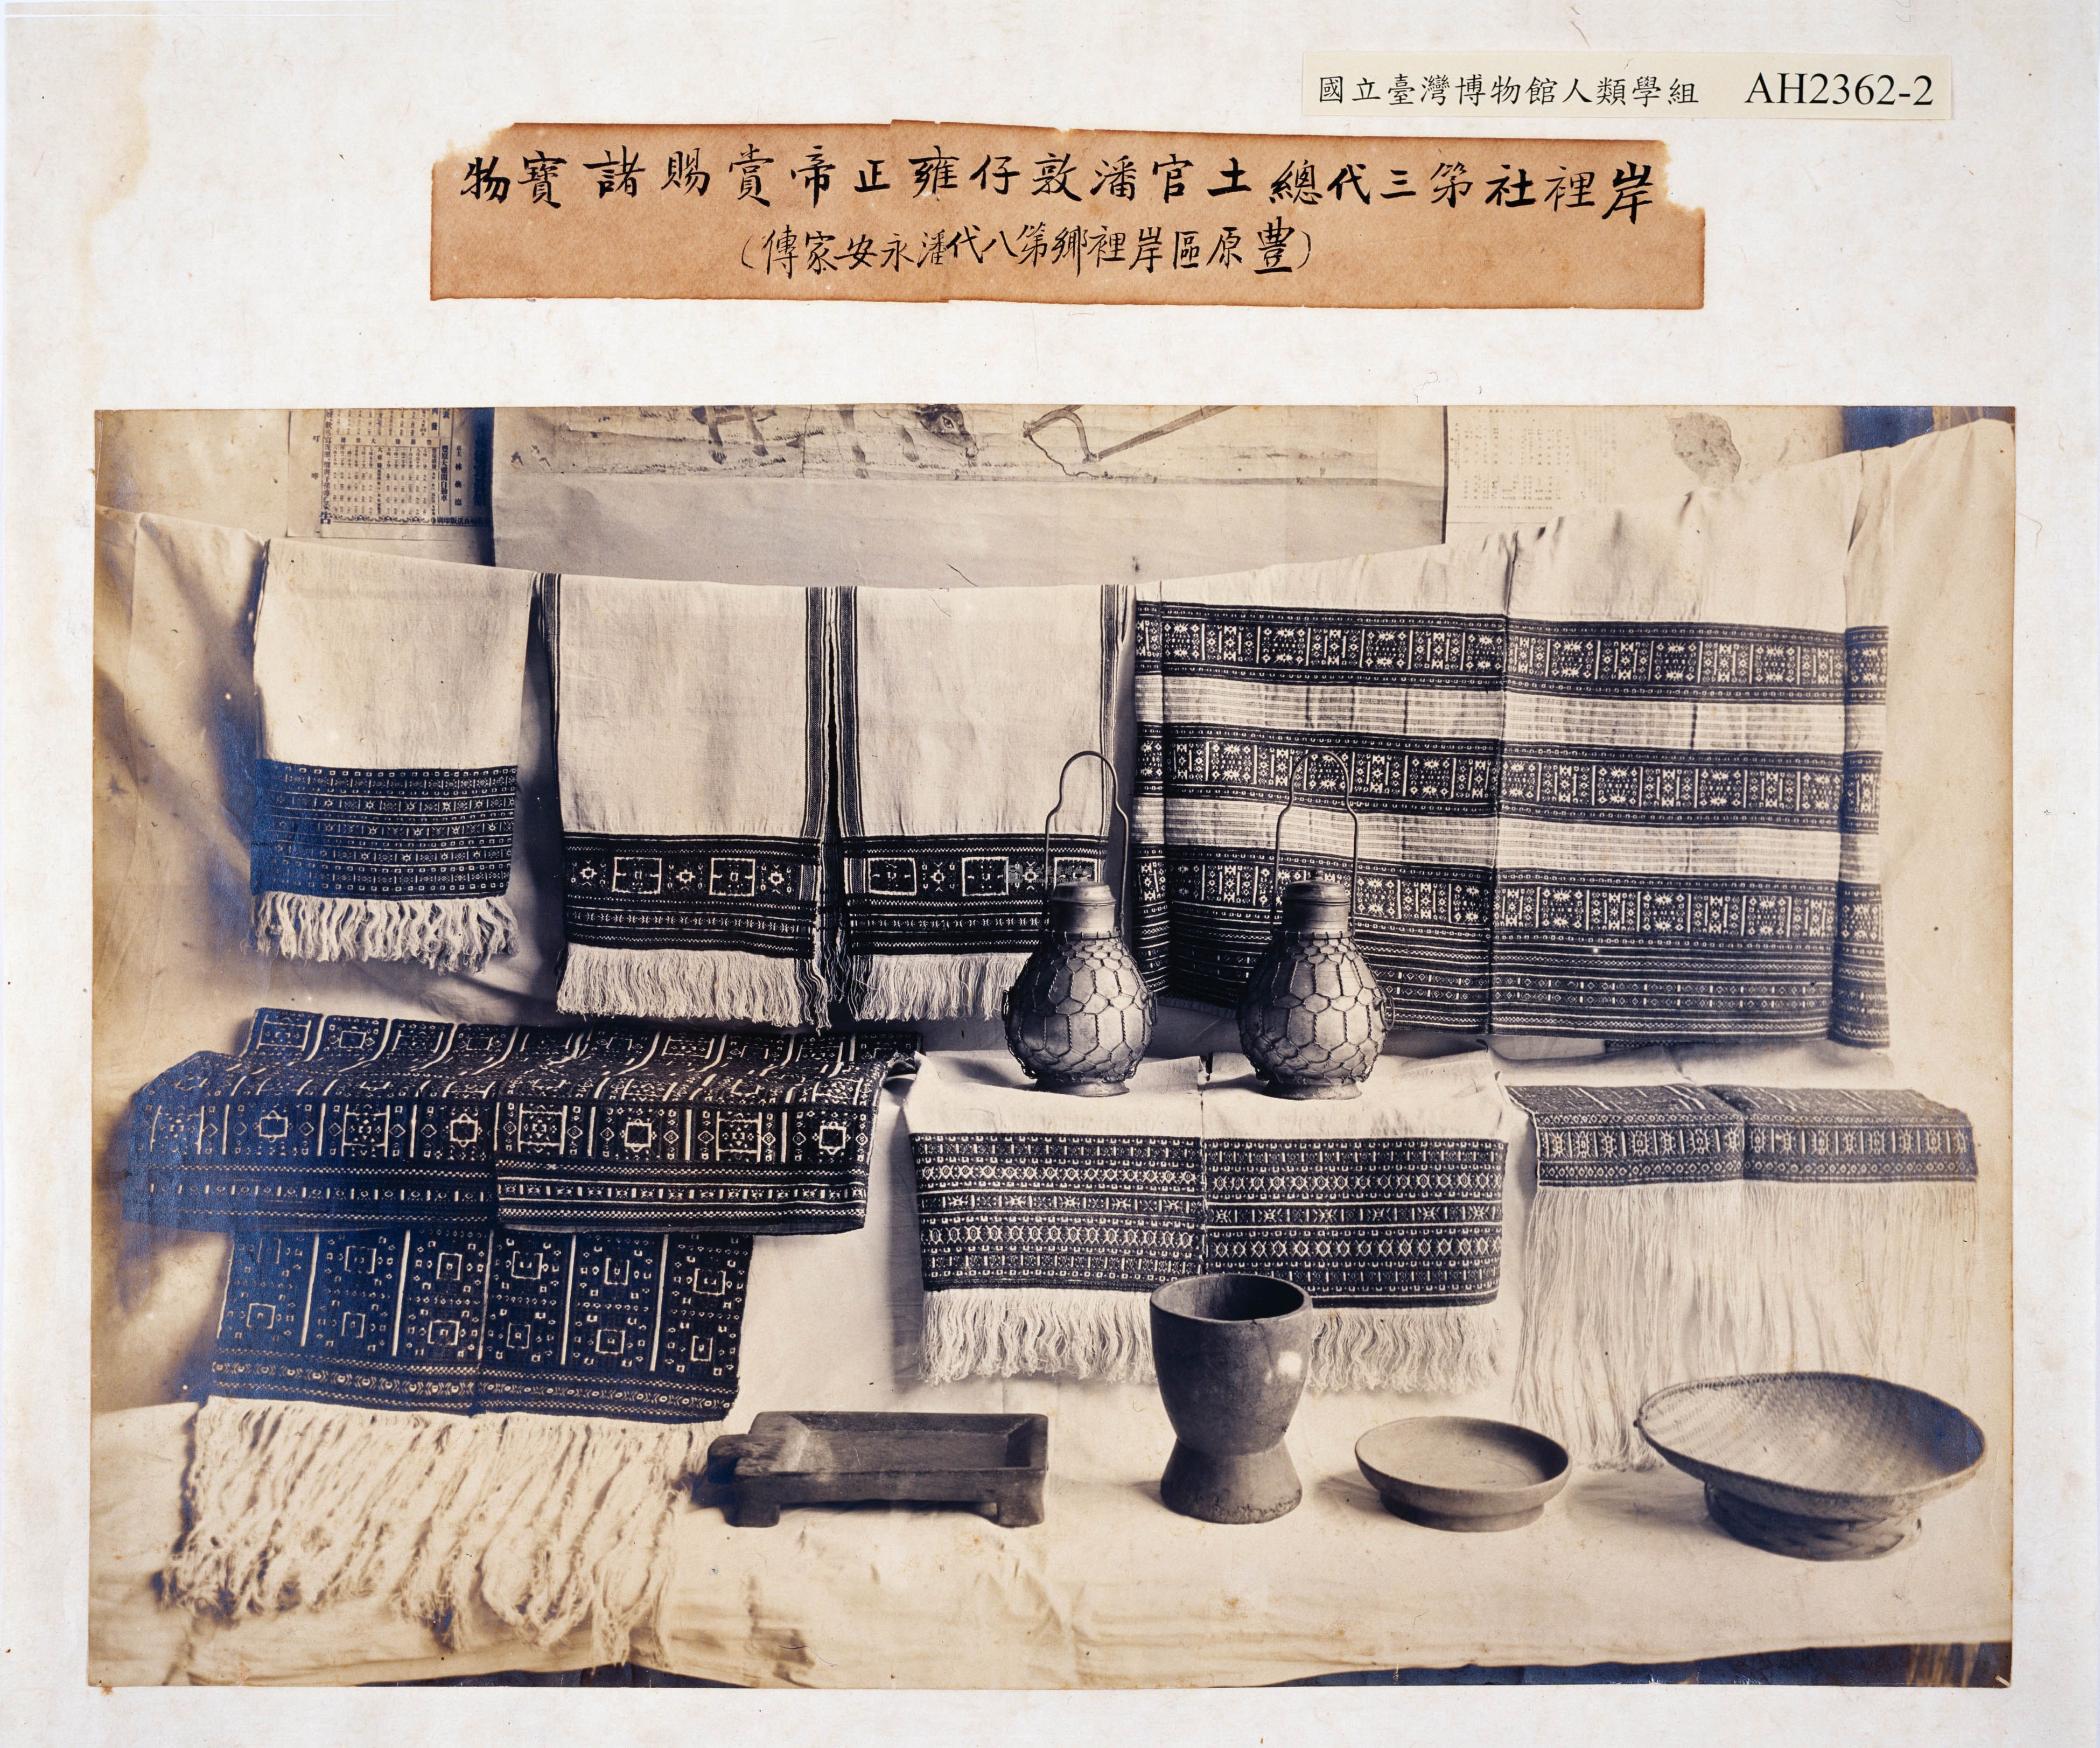 國立臺灣博物館人類學組 AH2362-2
岸裡社第三代總土官潘敦仔雍正帝賞賜諸寶物
(豐原區岸裡鄉第八代潘永安家傳)